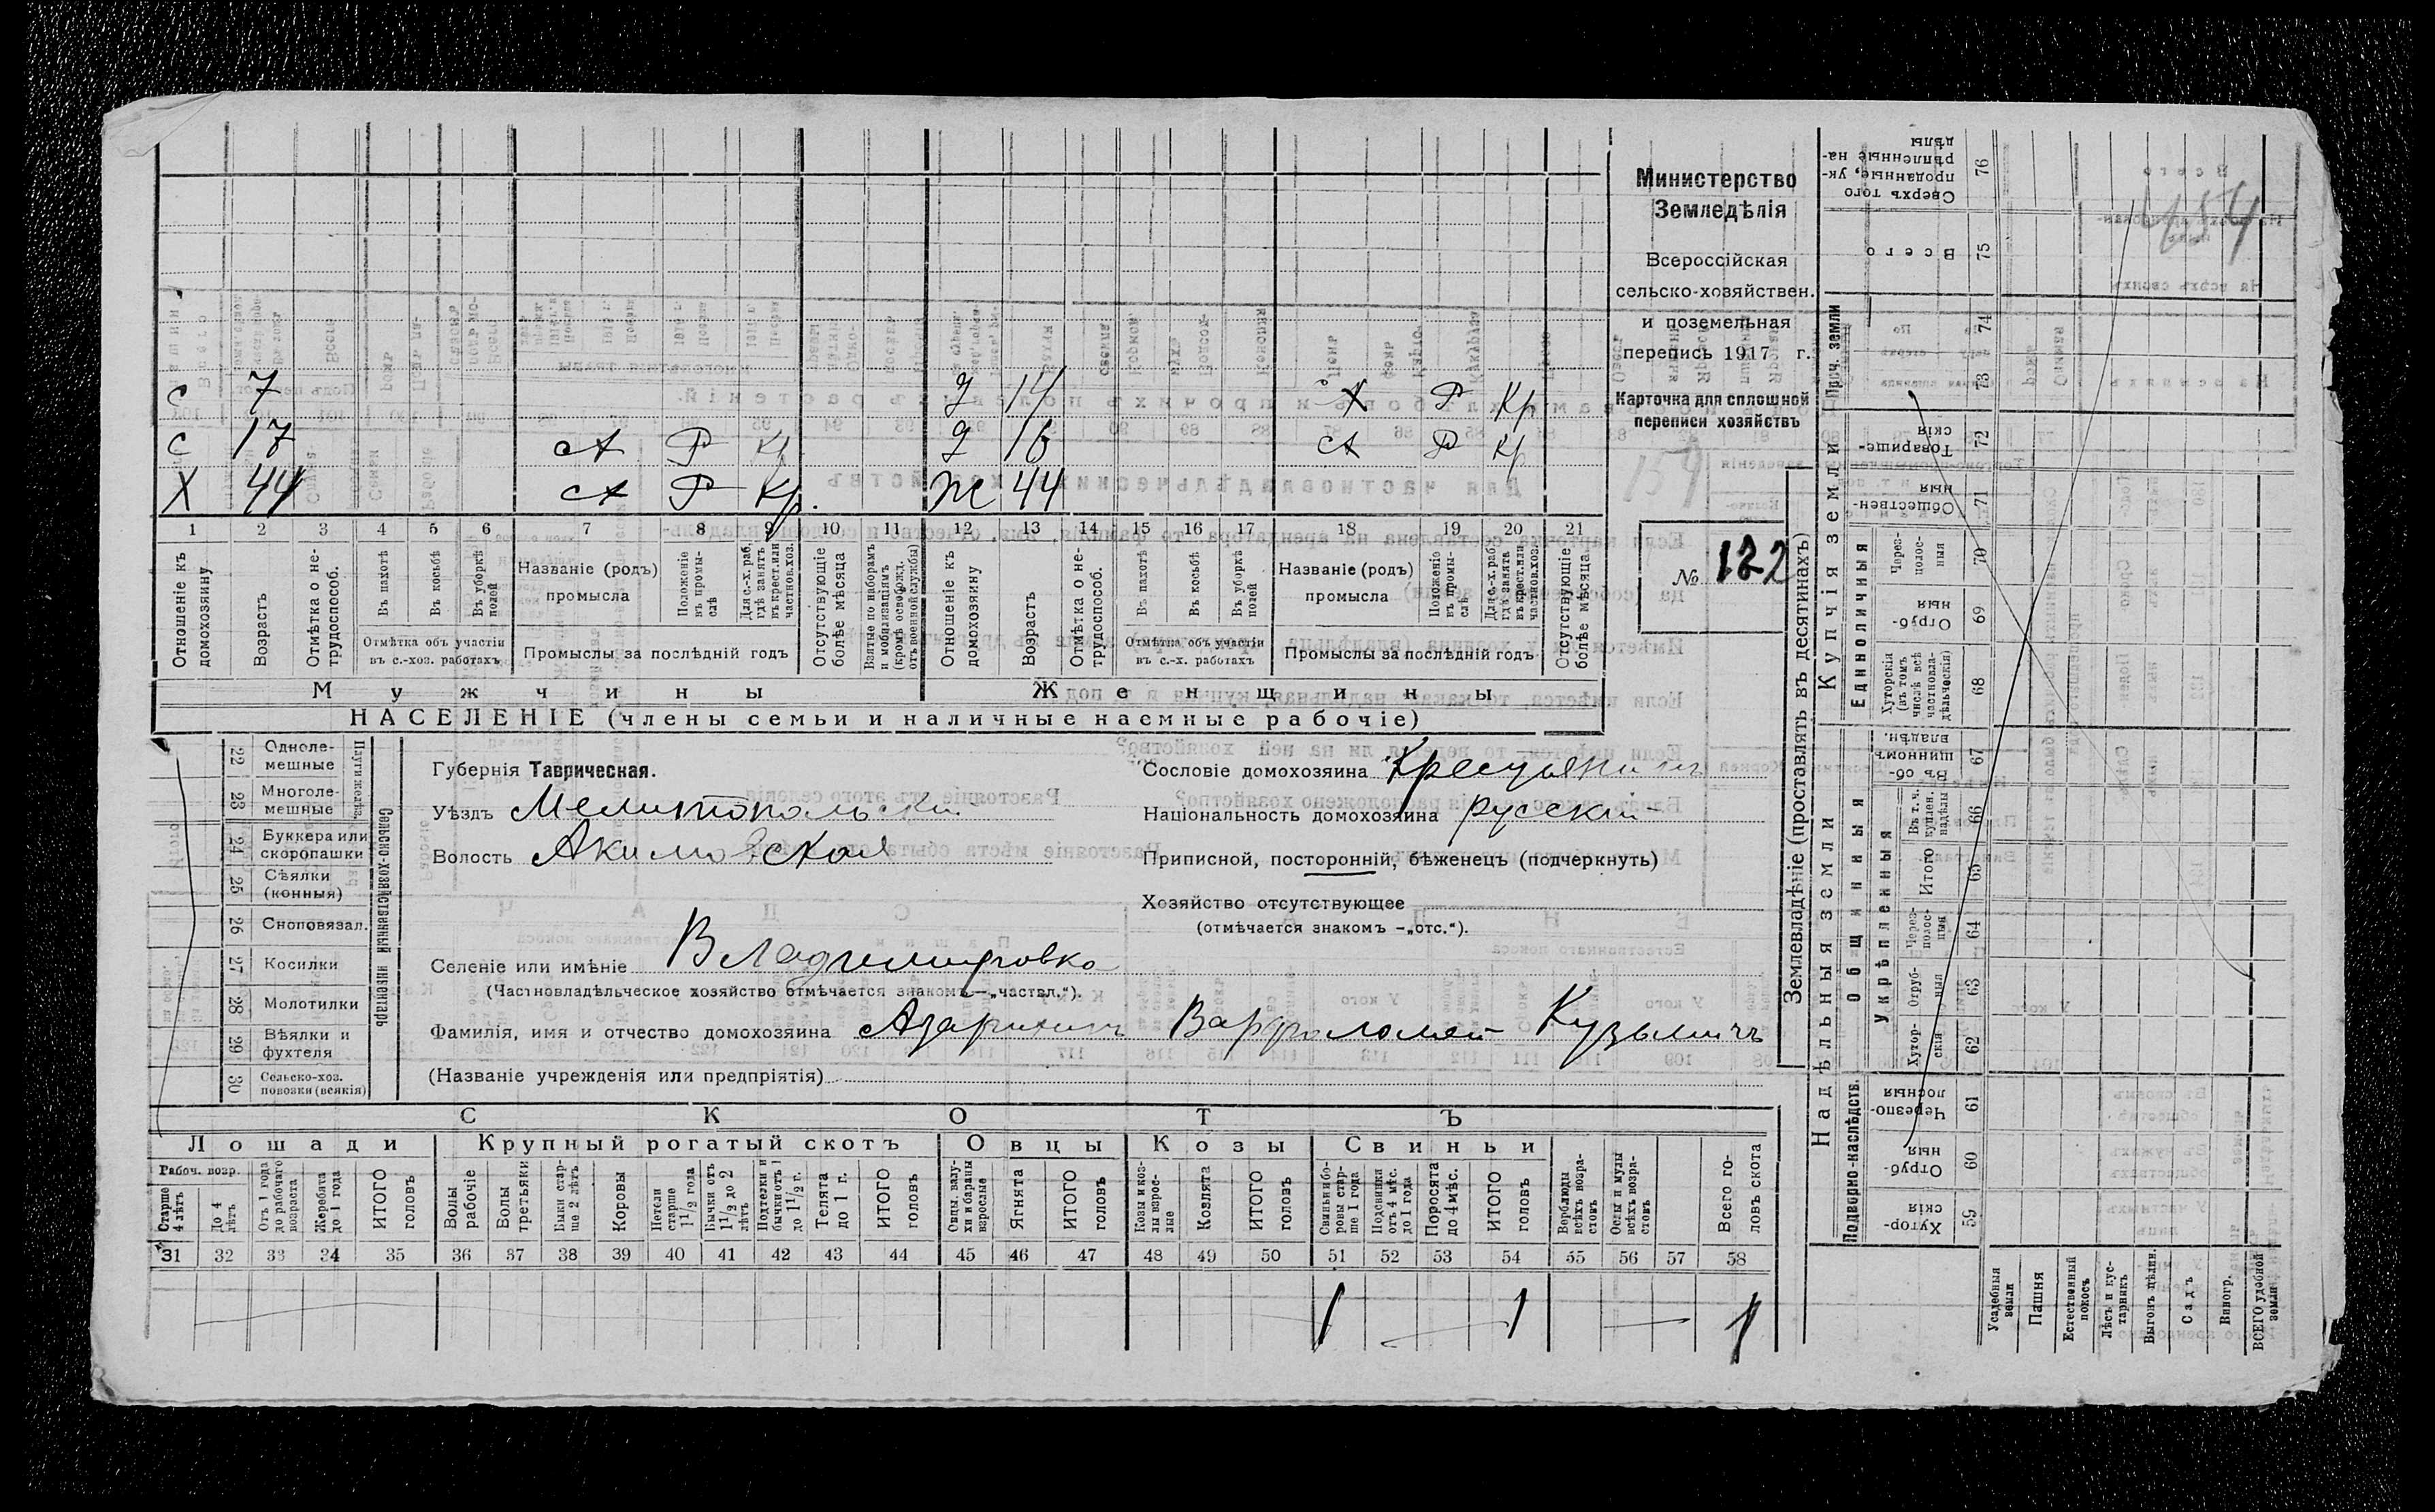 Министерство
Земледѣлія
Всероссійская
сельско-хозяйствен.
и поземельная
перепись 1917 г.
Карточка для сплошной
переписи хозяйствъ
№ 122
с 7 д 14 Х Р Кр
с 17 сх Р Кр д 16 сх Р Кр
Х 44 сх Р Кр. ж 44
1 2 3 4 5 6 7 8 9 10 11 12 13 14 15 16 17 18 19 20 21
Отношеніе къ домохозяину
Возрастъ
Отмѣтка о не-трудоспособ.
Въ пахотѣ
Въ косьбѣ
Въ уборкѣ полей
Отмѣтка объ участіи
въ с.-хоз. работахъ
Названіе (родъ)
промысла
Положеніе въ промы-слѣ
Для с.-х. раб., гдѣ занятъ въ крест. или частнов. хоз.
Промыслы за послѣдній годъ
Отсутствующіе болѣе мѣсяца
Взятые по наборамъ и мобилизаціямъ (кромѣ освобожд. отъ военной службы)
Отношеніе къ домохозяину
Возрастъ
Отмѣтка о не-трудоспособ.
Въ пахотѣ
Въ косьбѣ
Въ уборкѣ полей
Отмѣтка объ участіи
въ с.-х. работахъ
Названіе (родъ)
промысла
Положеніе въ промы-слѣ
Для с.-х. раб. гдѣ занята въ крест. или частнов. хоз.
Промыслы за послѣдній годъ
Отсутствующіе болѣе мѣсяца
Мужчины Женщины
НАСЕЛЕНІЕ (члены семьи и наличные наемные рабочіе)
Сельско-хозяйственный инвентарь
Плуги желѣз.
22 Одноле-мешные
23 Многоле-мешные
24 Буккера или скоропашки
25 Сѣялки (конныя)
26 Сноповязал.
27 Косилки
28 Молотилки
29 Вѣялки и фухтеля
30 Сельско-хоз. повозки (всякія)
Губернія Таврическая.
Уѣздъ Мелитопольскій
Волость Акимовская
Селеніе или имѣніе Владимировка
(Частновладѣльческое хозяйство отмѣчается знакомъ—„частвл.“).
Сословіе домохозяина Крестьянинъ
Національность домохозяина русскій
Приписной, посторонній, бѣженецъ (подчеркнуть)
Хозяйство отсутствующее
(отмѣчается знакомъ —„отс.“).
Фамилія, имя и отчество домохозяина Варфоломей Кузьмичъ
(Названіе учрежденія или предпріятія)
СКОТЪ
Лошади Крупный рогатый скотъ Овцы Козы Свиньи
Рабоч. возр.
Старше 4 лѣтъ
До 4 лѣтъ
Отъ 1 года до рабочаго возраста
Жеребята до 1 года
ИТОГО головъ
Волы рабочіе
Волы третьяки
Быки стар-ше 2 лѣтъ
Коровы
Нетели старше 1½ года
Бычки отъ 1½ до 2 лѣтъ
Подтелки и бычки отъ 1 до 1½ г.
Телята до 1 г.
ИТОГО головъ
Овцы, валу-хи и бараны взрослые
Ягнята
ИТОГО головъ
Козы и коз-лы взрос-лые
Козлята
ИТОГО головъ
Свиньи и бо-ровы стар-ше 1 года
Подсвинки отъ 4 мѣс. до 1 года
Поросята до 4 мѣс.
ИТОГО головъ
Верблюды всѣхъ возра-стовъ
Ослы и мулы всѣхъ возра-стовъ
Всего го-ловъ скота
31 32 33 34 35 36 37 38 39 40 41 42 43 44 45 46 47 48 49 50 51 52 53 54 55 56 57 58
1 1 1
Землевладѣніе (проставлять въ десятинахъ)
Купчія земли
Проч. земли
Единоличныя
Сверхъ того проданные, ук-рѣпленные на-дѣлы 76
Всего 75
74
73
Товарище-скія 72
Обществен-ныя 71
Через-полос-ныя 70
Отруб-ныя 69
Хуторскія (въ томъ числѣ всѣ частновла-дѣльческія) 68
Надѣльныя земли
Общинныя
Укрѣпленныя
Въ об-щинномъ владѣн. 67
Въ т. ч. куплен. надѣлы 66
Итого 65
Через-полос-ныя 64
Отруб-ныя 63
Хутор-скія 62
Подворно-наслѣдств.
Черезпо-лосныя 61
Отруб-ныя 60
Хутор-скія 59
Усадебныя земли
Пашня
Естественный покосъ
Лѣсъ и кус-тарникъ
Выгонъ цѣлин.
Садъ
Виногр.
ВСЕГО удобной земли